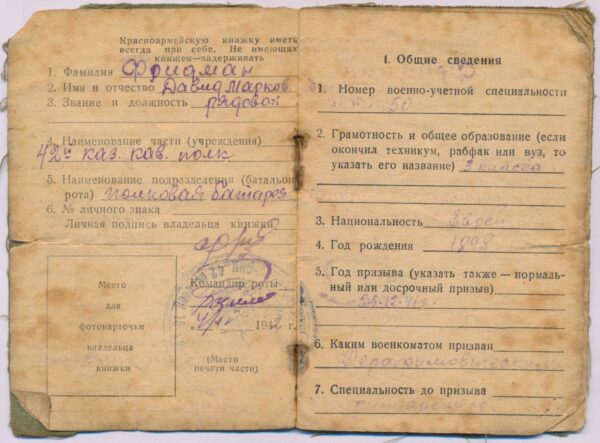 Красноармейскую книжку иметь
всегда при себе. Не имеющих
книжек—задерживать
1. Фамилия Фридман
2. Имя и отчество Давид Марков.
3. Звание и должность рядовой
4. Наименование части (учреждения)
42й каз. кав. полк
5. Наименование подразделения (батальон,
рота) полковая батарея
6. № личного знака
Личная подпись владельца книжки
Командир роты
1942 г.
Место
для
фотокарточки
владельца
книжки
(Место
печати части)
I. Общие сведения
1. Номер военно-учетной специальности
50
2. Грамотность и общее образование (если
окончил техникум, рабфак или вуз, то
указать его название) 3 класса
3. Национальность Еврей
4. Год рождения 1898
5. Год призыва (указать также — нормаль-
ный или досрочный призыв)
25.12.41 г.
6. Каким военкоматом призван
7. Специальность до призыва